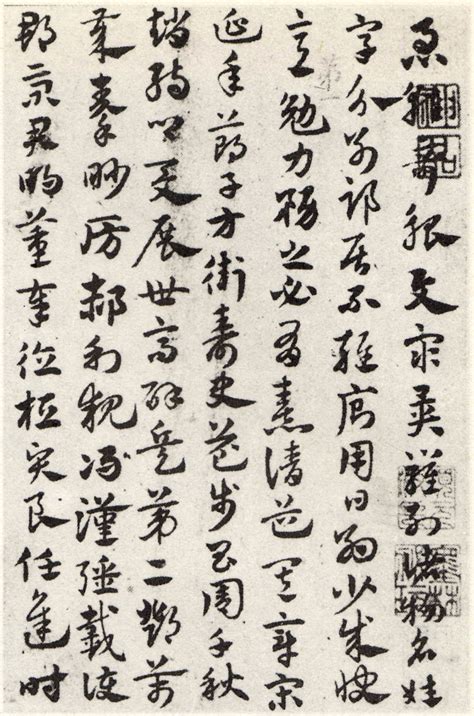 急就奇觚與眾異羅列諸物名姓
字分別部居不雜廁用日約少誠快
意勉力務之必有憙請道其章宋
延年鄭子方衛壽史益步昌周千秋
趙孺卿爰展世高辟兵第二鄧萬
歲秦眇房郝利親馮漢強戴護
郡景君明董奉德桓賢良任逢時